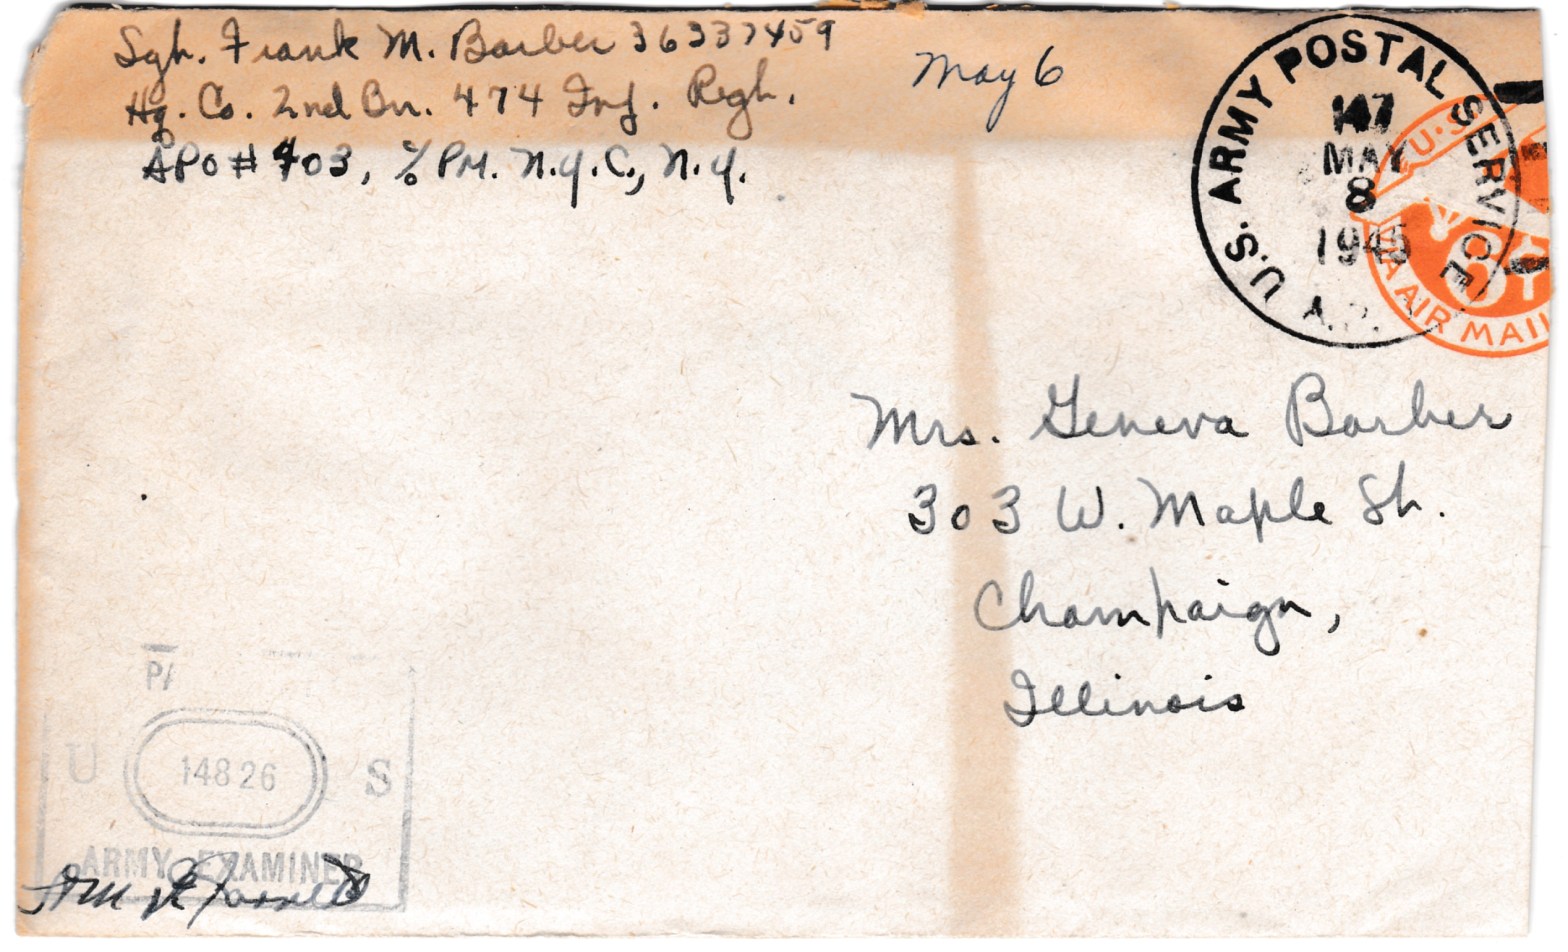 Sgt. Frank M. Barber 36337459
Hq. Co. 2nd Bn. 474 Inf. Regt.
APO # 403, % PM. N.Y.C., N.Y.
May 6
U.S. ARMY POSTAL SERVICE
MAY
8
1945
A.P.
U.S.
6
VIA AIR MAIL
Mrs. Geneva Barber
303 W. Maple St.
Champaign,
Illinois
U 14826 S
ARMY EXAMINER